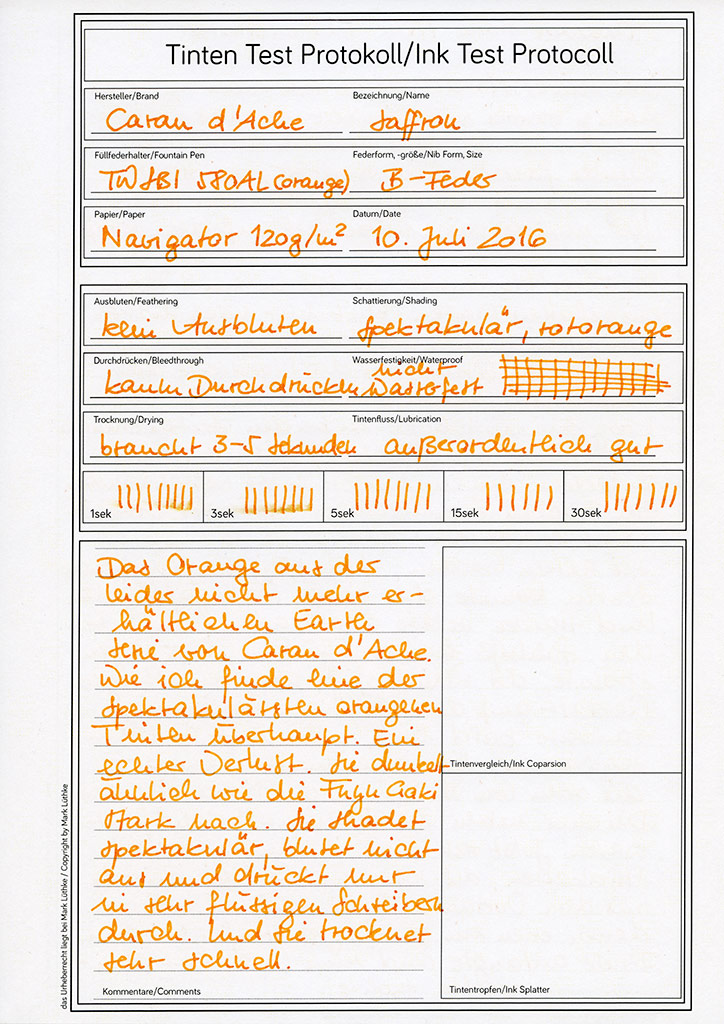 Tinten Test Protokoll/Ink Test Protocoll
Hersteller/Brand
Caran d'Ache
Bezeichnung/Name
Saffron
Füllfederhalter/Fountain Pen
TWSBI 580AL (orange)
Federform, -größe/Nib Form, Size
B-Feder
Papier/Paper
Navigator 120g/m²
Datum/Date
10. Juli 2016
Ausbluten/Feathering
kein Ausbluten
Schattierung/Shading
spektakulär, rotorange
Durchdrücken/Bleedthrough
kaum Durchdrücken
Wasserfestigkeit/Waterproof
nicht
wasserfest
Trocknung/Drying
braucht 3-5 Sekunden
Tintenfluss/Lubrication
außerordentlich gut
1sek
3sek
5sek
15sek
30sek
Das Orange aus der
leider nicht mehr er-
hältlichen Earth
Serie von Caran d'Ache.
Wie ich finde eine der
spektakulärsten orangenen
Tinten überhaupt. Ein
echter Verlust. Sie dunkelt
ähnlich wie die Fuyu Gaki
stark nach. Sie shadet
spektakulär, blutet nicht
aus und drückt nur
in sehr flüssigen Schreibern
durch. Und sie trocknet
sehr schnell.
Kommentare/Comments
Tintenvergleich/Ink Coparsion
Tintentropfen/Ink Splatter
das Urheberrecht liegt bei Mark Lüthke / Copyright by Mark Lüthke